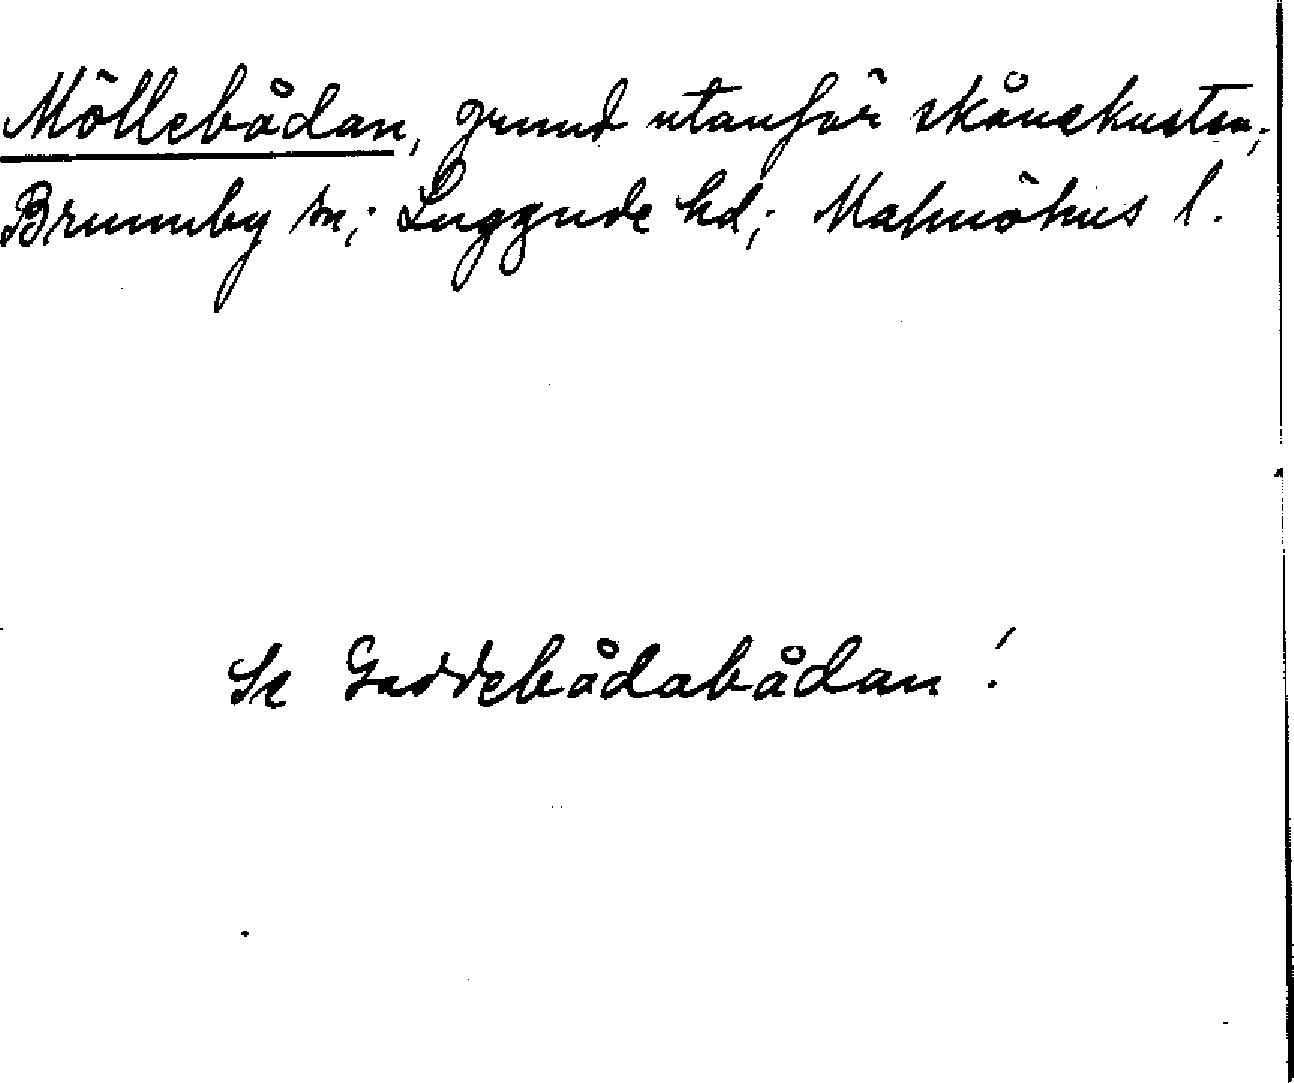 Möllebådan, grund utanför skånekusten;
Brunnby sn; Luggude hd; Malmöhus l.
Se Gaddebådabådan!